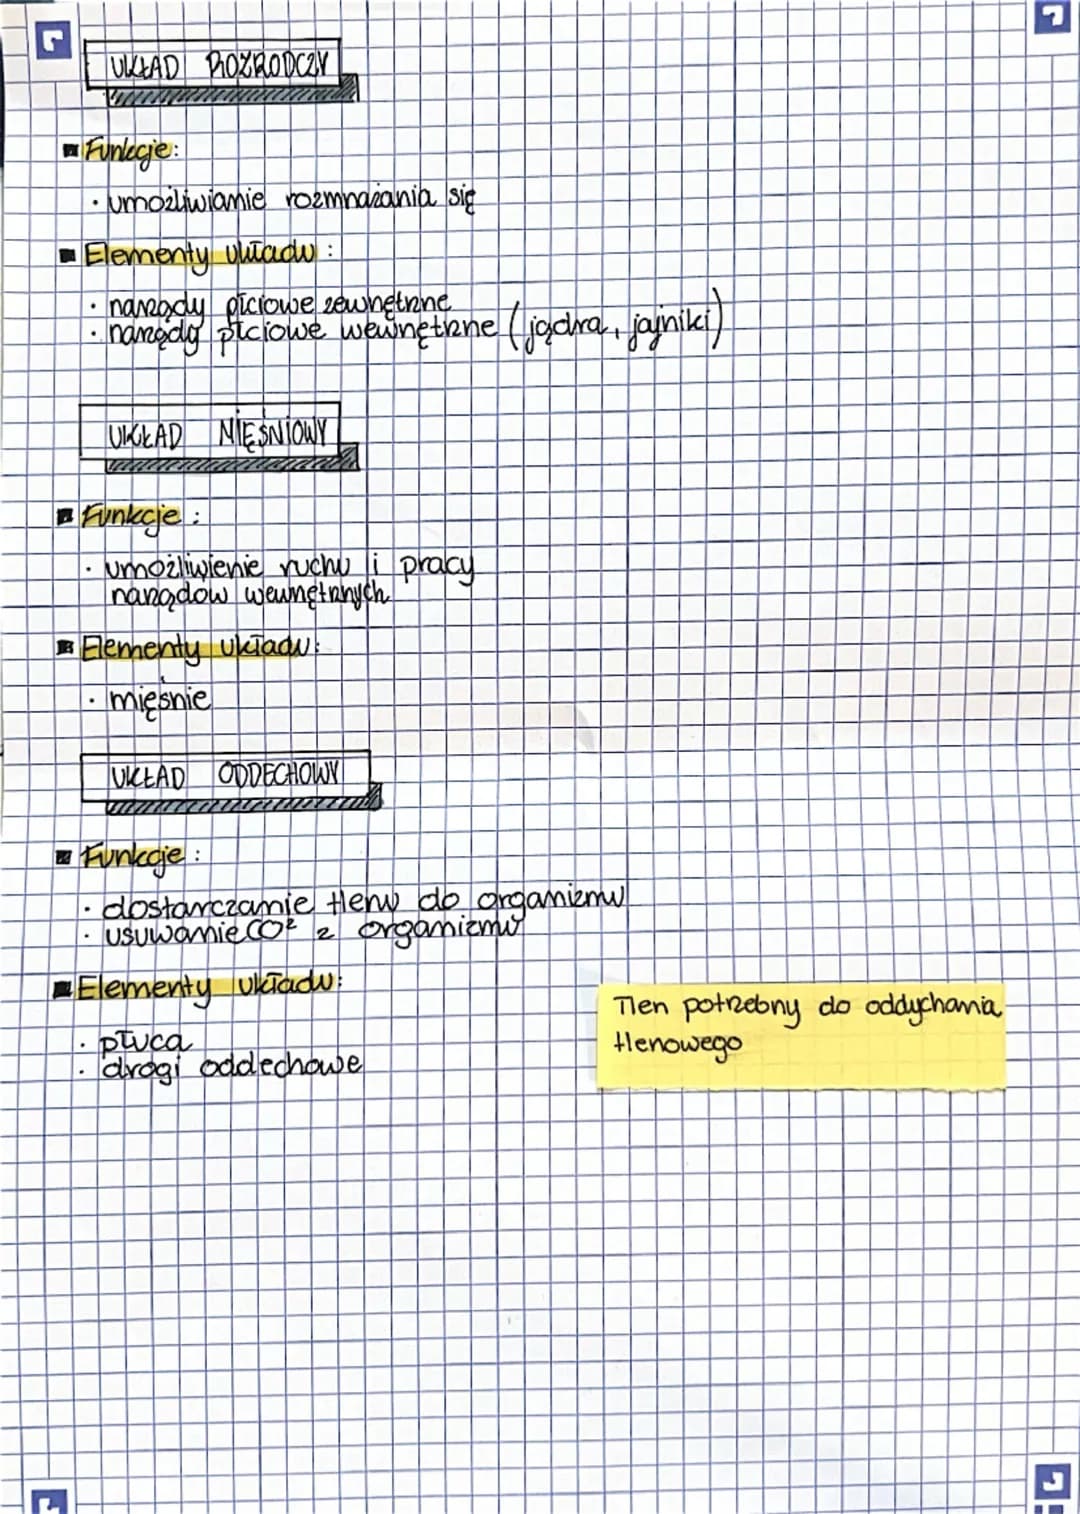 UKŁAD ROZRODCZY
Funkcje:
• umożliwianie rozmnażania się
Elementy układu:
• narządy płciowe zewnętrzne
• narządy płciowe wewnętrzne (jądra, jajniki)
UKŁAD MIĘŚNIOWY
Funkcje:
• umożliwienie ruchu i pracy
narządów wewnętrznych
Elementy układu:
• mięśnie
UKŁAD ODDECHOWY
Funkcje:
• dostarczanie tlenu do organizmu
• usuwanie CO² z organizmu
Elementy układu:
• płuca
• drogi oddechowe
Tlen potrzebny do oddychania
tlenowego